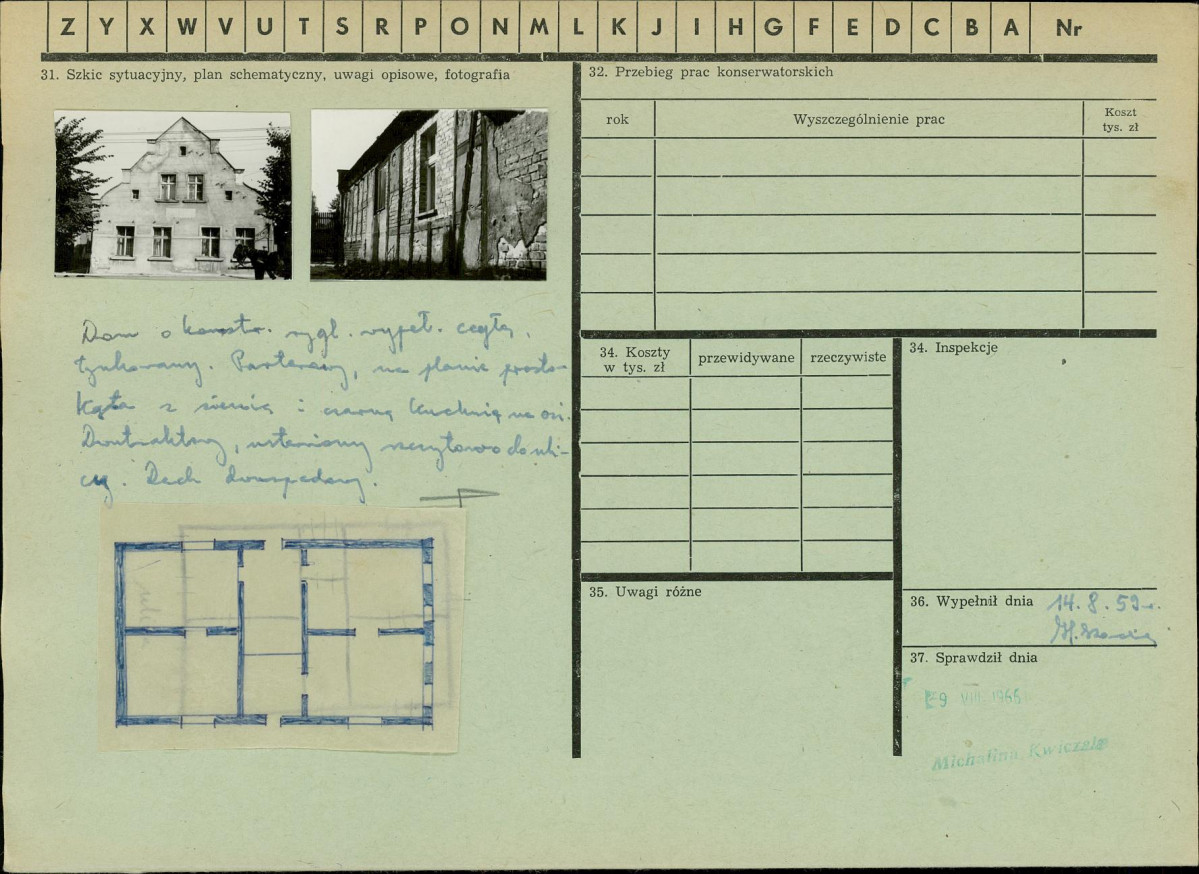 Z Y X W V U T S R P O N M L K J I H G F E D C B A Nr
31. Szkic sytuacyjny, plan schematyczny, uwagi opisowe, fotografia
Dom o konstr. rygl. wypeł. cegłą,
tynkowany. Parterowy, na planie prosto-
kąta z sienią i czarną kuchnią na osi.
Dwutraktowy, ustawiony szczytowo do uli-
cy. Dach dwuspadowy.
32. Przebieg prac konserwatorskich
rok
Wyszczególnienie prac
Koszt
tys. zł
34. Koszty
w tys. zł
przewidywane
rzeczywiste
34. Inspekcje
35. Uwagi różne
36. Wypełnił dnia 14. 8. 59 r.
37. Sprawdził dnia
9 VIII 1966
Michalina Kwiczala